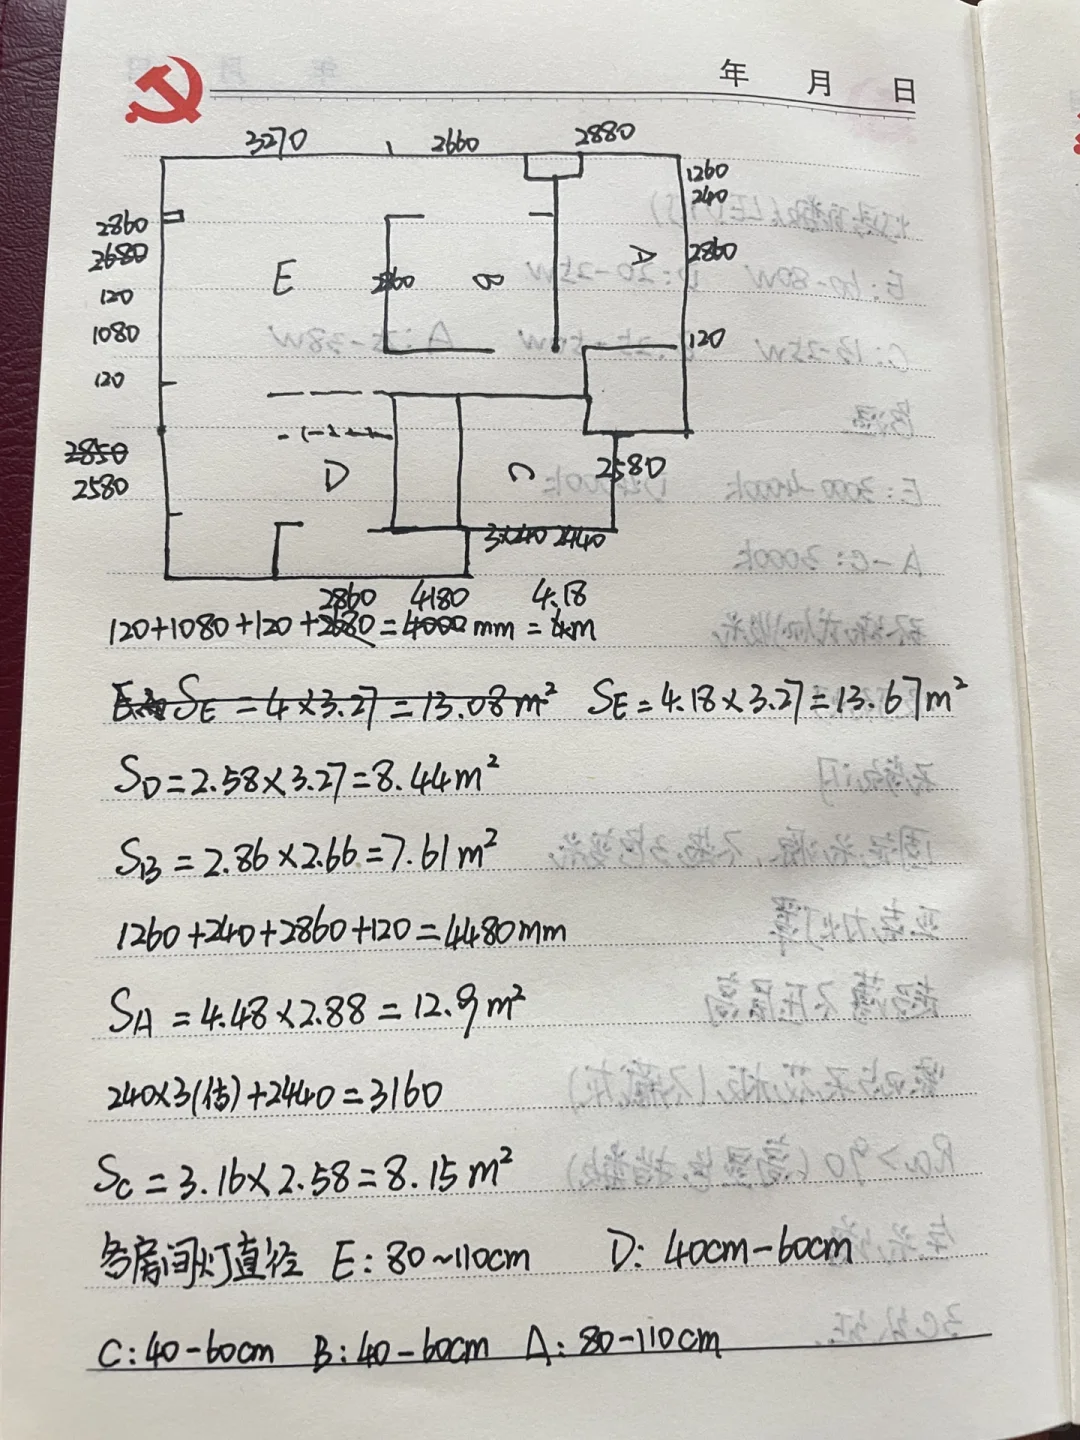 年 月 日
3270 2660 2880
1260
240
2860
2680
120
1080
120
E
2860
B
A
2860
120
2850
2580
D
C
2580
3×240 2440
2860 4180 4.18
120+1080+120+2680=4000mm=4m
SE=4×3.27=13.08m² SE=4.18×3.27=13.67m²
SD=2.58×3.27=8.44m²
SB=2.86×2.66=7.61m²
1260+240+2860+120=4480mm
SA=4.48×2.88=12.9m²
240×3(估)+2440=3160
SC=3.16×2.58=8.15m²
各房间灯直径 E:80~110cm D:40cm-60cm
C:40-60cm B:40-60cm A:80-110cm